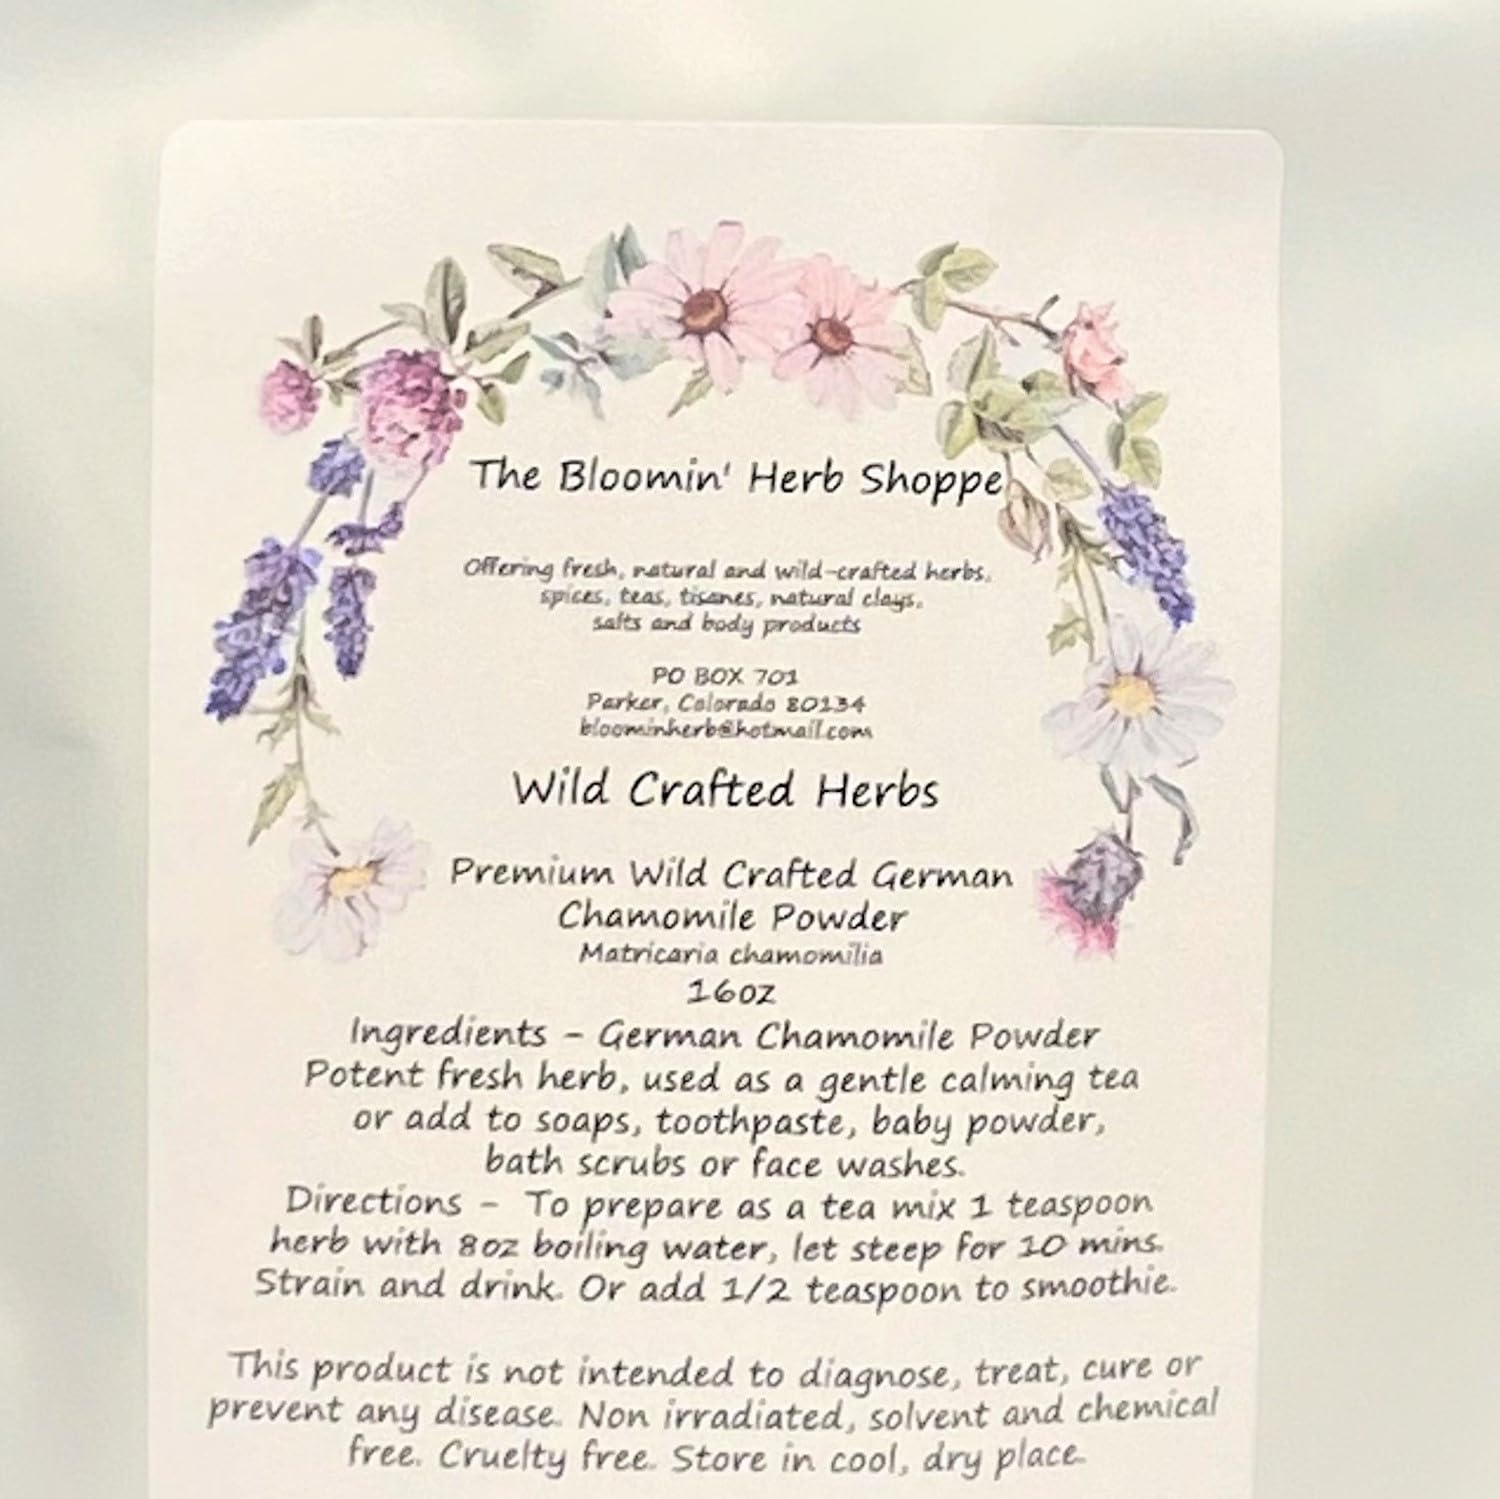 The Bloomin' Herb Shoppe
Offering fresh, natural and wild-crafted herbs,
spices, teas, tisanes, natural clays,
salts and body products
PO BOX 701
Parker, Colorado 80134
bloominherb@hotmail.com
Wild Crafted Herbs
Premium Wild Crafted German
Chamomile Powder
Matricaria chamomilia
16oz
Ingredients - German Chamomile Powder
Potent fresh herb, used as a gentle calming tea
or add to soaps, toothpaste, baby powder,
bath scrubs or face washes.
Directions - To prepare as a tea mix 1 teaspoon
herb with 8oz boiling water, let steep for 10 mins.
Strain and drink. Or add 1/2 teaspoon to smoothie.
This product is not intended to diagnose, treat, cure or
prevent any disease. Non irradiated, solvent and chemical
free. Cruelty free. Store in cool, dry place.